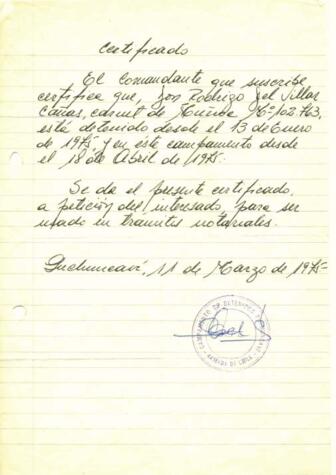 Certificado
El Comandante que suscribe,
certifica que, don Rodrigo del Villar
Cañas, carnet de Ñuñoa Nº 102.763,
está detenido desde el 13 de Enero
de 1975, y en este campamento desde
el 18 de Abril de 1975.
Se da el presente certificado,
a petición del interesado para ser
usado en trámites notariales.
Puchuncaví, 11 de Marzo de 1975
CAMPAMENTO DE DETENIDOS
ARMADA DE CHILE